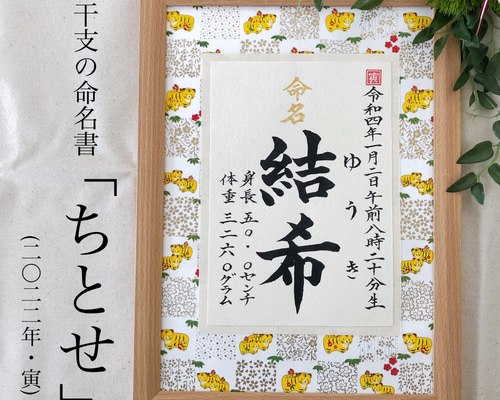 寅
令和四年一月二日午前八時二十分生
命名
結希
ゆうき
身長 五〇.〇センチ
体重 三二六〇グラム
干支の命名書
「ちとせ」
(二〇二二年・寅)